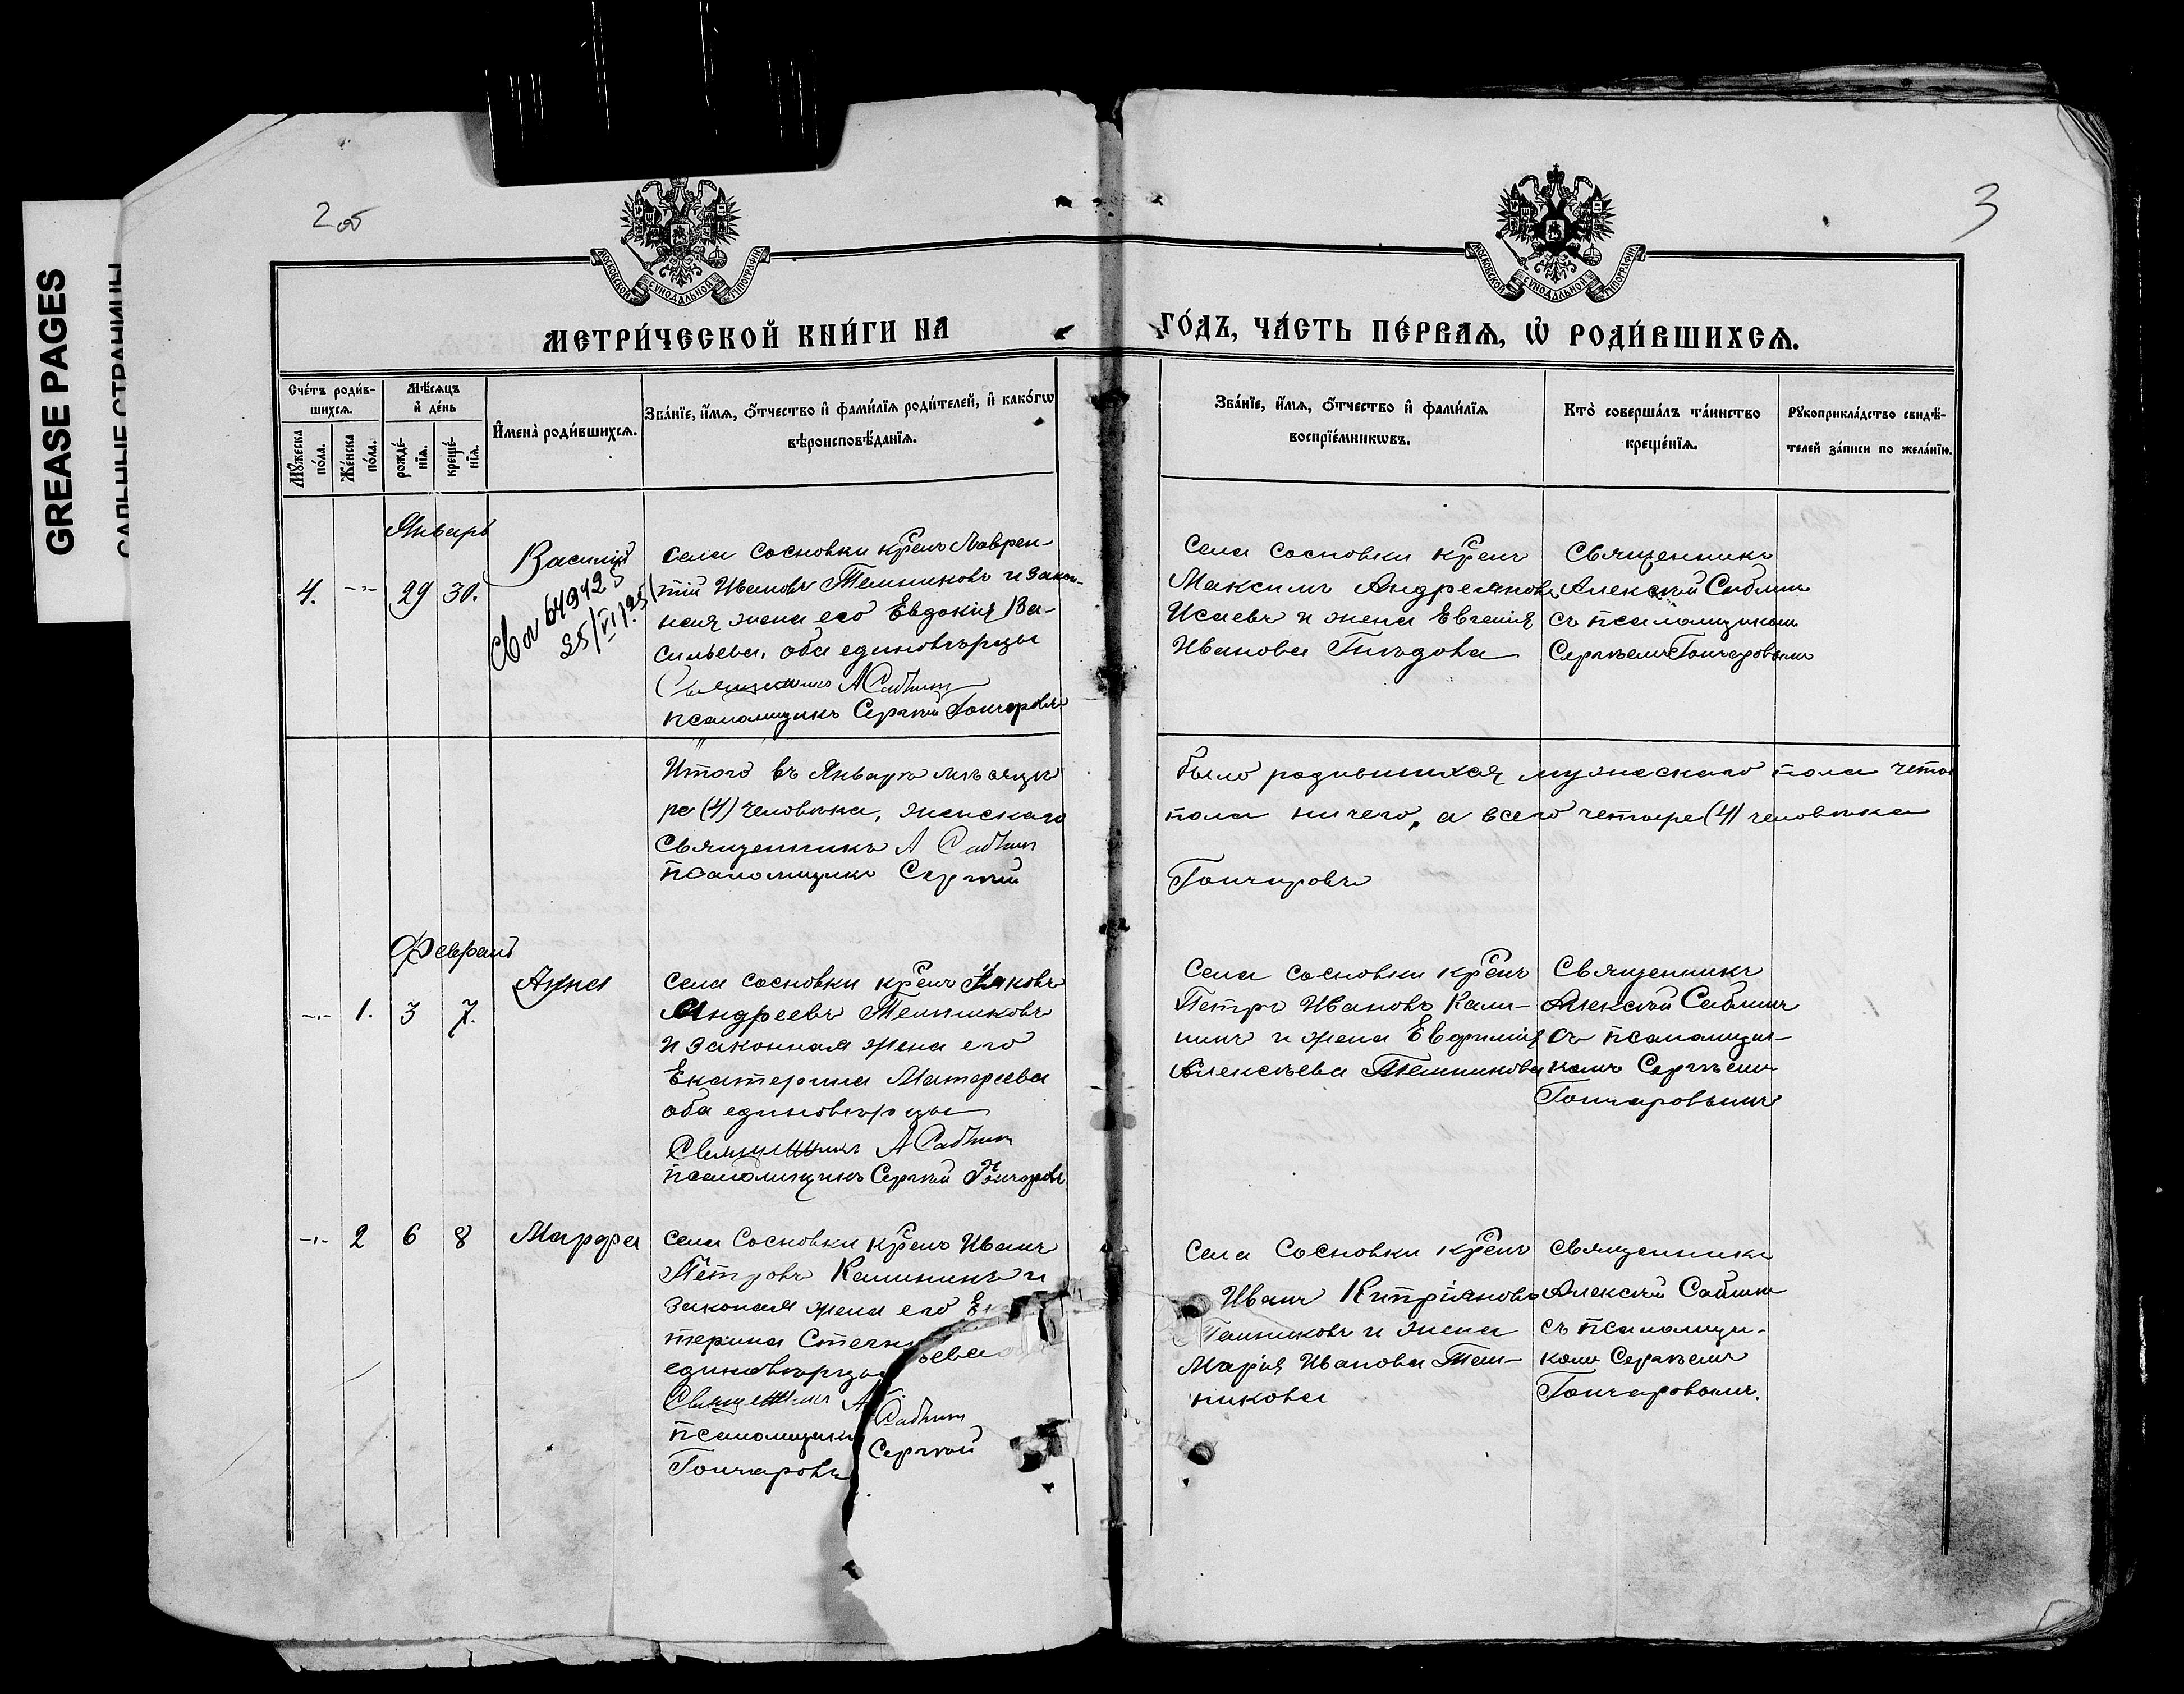 GREASE PAGES
САЛЬНЫЕ СТРАНИЦЫ
2 об
3
МОСКОВСКОЙ СѴНОДАЛЬНОЙ ТИПОГРАФІИ
МОСКОВСКОЙ СѴНОДАЛЬНОЙ ТИПОГРАФІИ
МЕТРИ́ЧЕСКОЙ КНИ́ГИ НА
ГО́ДЪ, ЧА́СТЬ ПЕ́РВАѦ, Ѽ РОДИ́ВШИХСѦ.
Сче́тъ роди́в-
шихсѧ.
Мѣ́сѧцъ
и҆ де́нь
Мꙋ́жеска
по́ла.
Же́нска
по́ла.
рожде́-
нїѧ.
креще́-
нїѧ.
И҆мена̀ роди́вшихсѧ.
Зва́нїе, и҆́мѧ, ѻ҆́тчество и҆ фами́лїѧ роди́телей, и҆ како́гѡ
вѣроисповѣ́данїѧ.
Зва́нїе, и҆́мѧ, ѻ҆́тчество и҆ фами́лїѧ
воспрїе́мникѡвъ.
Кто̀ соверша́лъ та́инство
креще́нїѧ.
Рꙋкоприкла́дство свидѣ́-
телей за́писи по жела́нїю.
Январь
4. -"- 29 30.
Василій
Св № 64942
25/VI/25
села Сосновки крен Лаврен-
тій Ивановъ Темниковъ и закон-
ная жена его Евдокія Ва-
сильева, оба единовѣрцы
Священникъ А Саблин
псаломщикъ Сергѣй Гончаровъ
Села Сосновки крен
Максимъ Андреяновъ
Исаевъ и жена Евгенія
Иванова Гнѣдова
Священникъ
Алексѣй Саблинъ
съ псаломщикомъ
Сергѣемъ Гончаровымъ
Итого въ Январѣ мѣсяцѣ
было родившихся мужескаго пола четы
ре (4) человѣка, женскаго
пола ничего, а всего четыре (4) человѣка
Священникъ А Саблин
псаломщикъ Сергѣй
Гончаровъ
Февраль
-"- 1. 3 7.
Анна
села Сосновки крен Яковъ
Андреевъ Темниковъ
и законная жена его
Екатерина Матфеева
оба единовѣрцы
Священникъ А Саблин
псаломщикъ Сергѣй Гончаровъ
Села Сосновки крен
Петръ Ивановъ Кали-
нинъ и жена Евфимія
Алексѣева Темникова
Священникъ
Алексѣй Саблинъ
съ псаломщи-
комъ Сергѣемъ
Гончаровымъ
-"- 2 6 8
Марфа
села Сосновки крен Иванъ
Петровъ Калининъ и
законая жена его Ек
терина Степан ьева
единовѣрцы
Священникъ А Саблин
псаломщикъ Сергѣй
Гончаровъ
Села Сосновки крен
Иванъ Кипріяновъ
Темниковъ и жена
Марія Иванова Тем-
никова
Священникъ
Алексѣй Саблинъ
съ псаломщи-
комъ Сергѣемъ
Гончаровымъ.